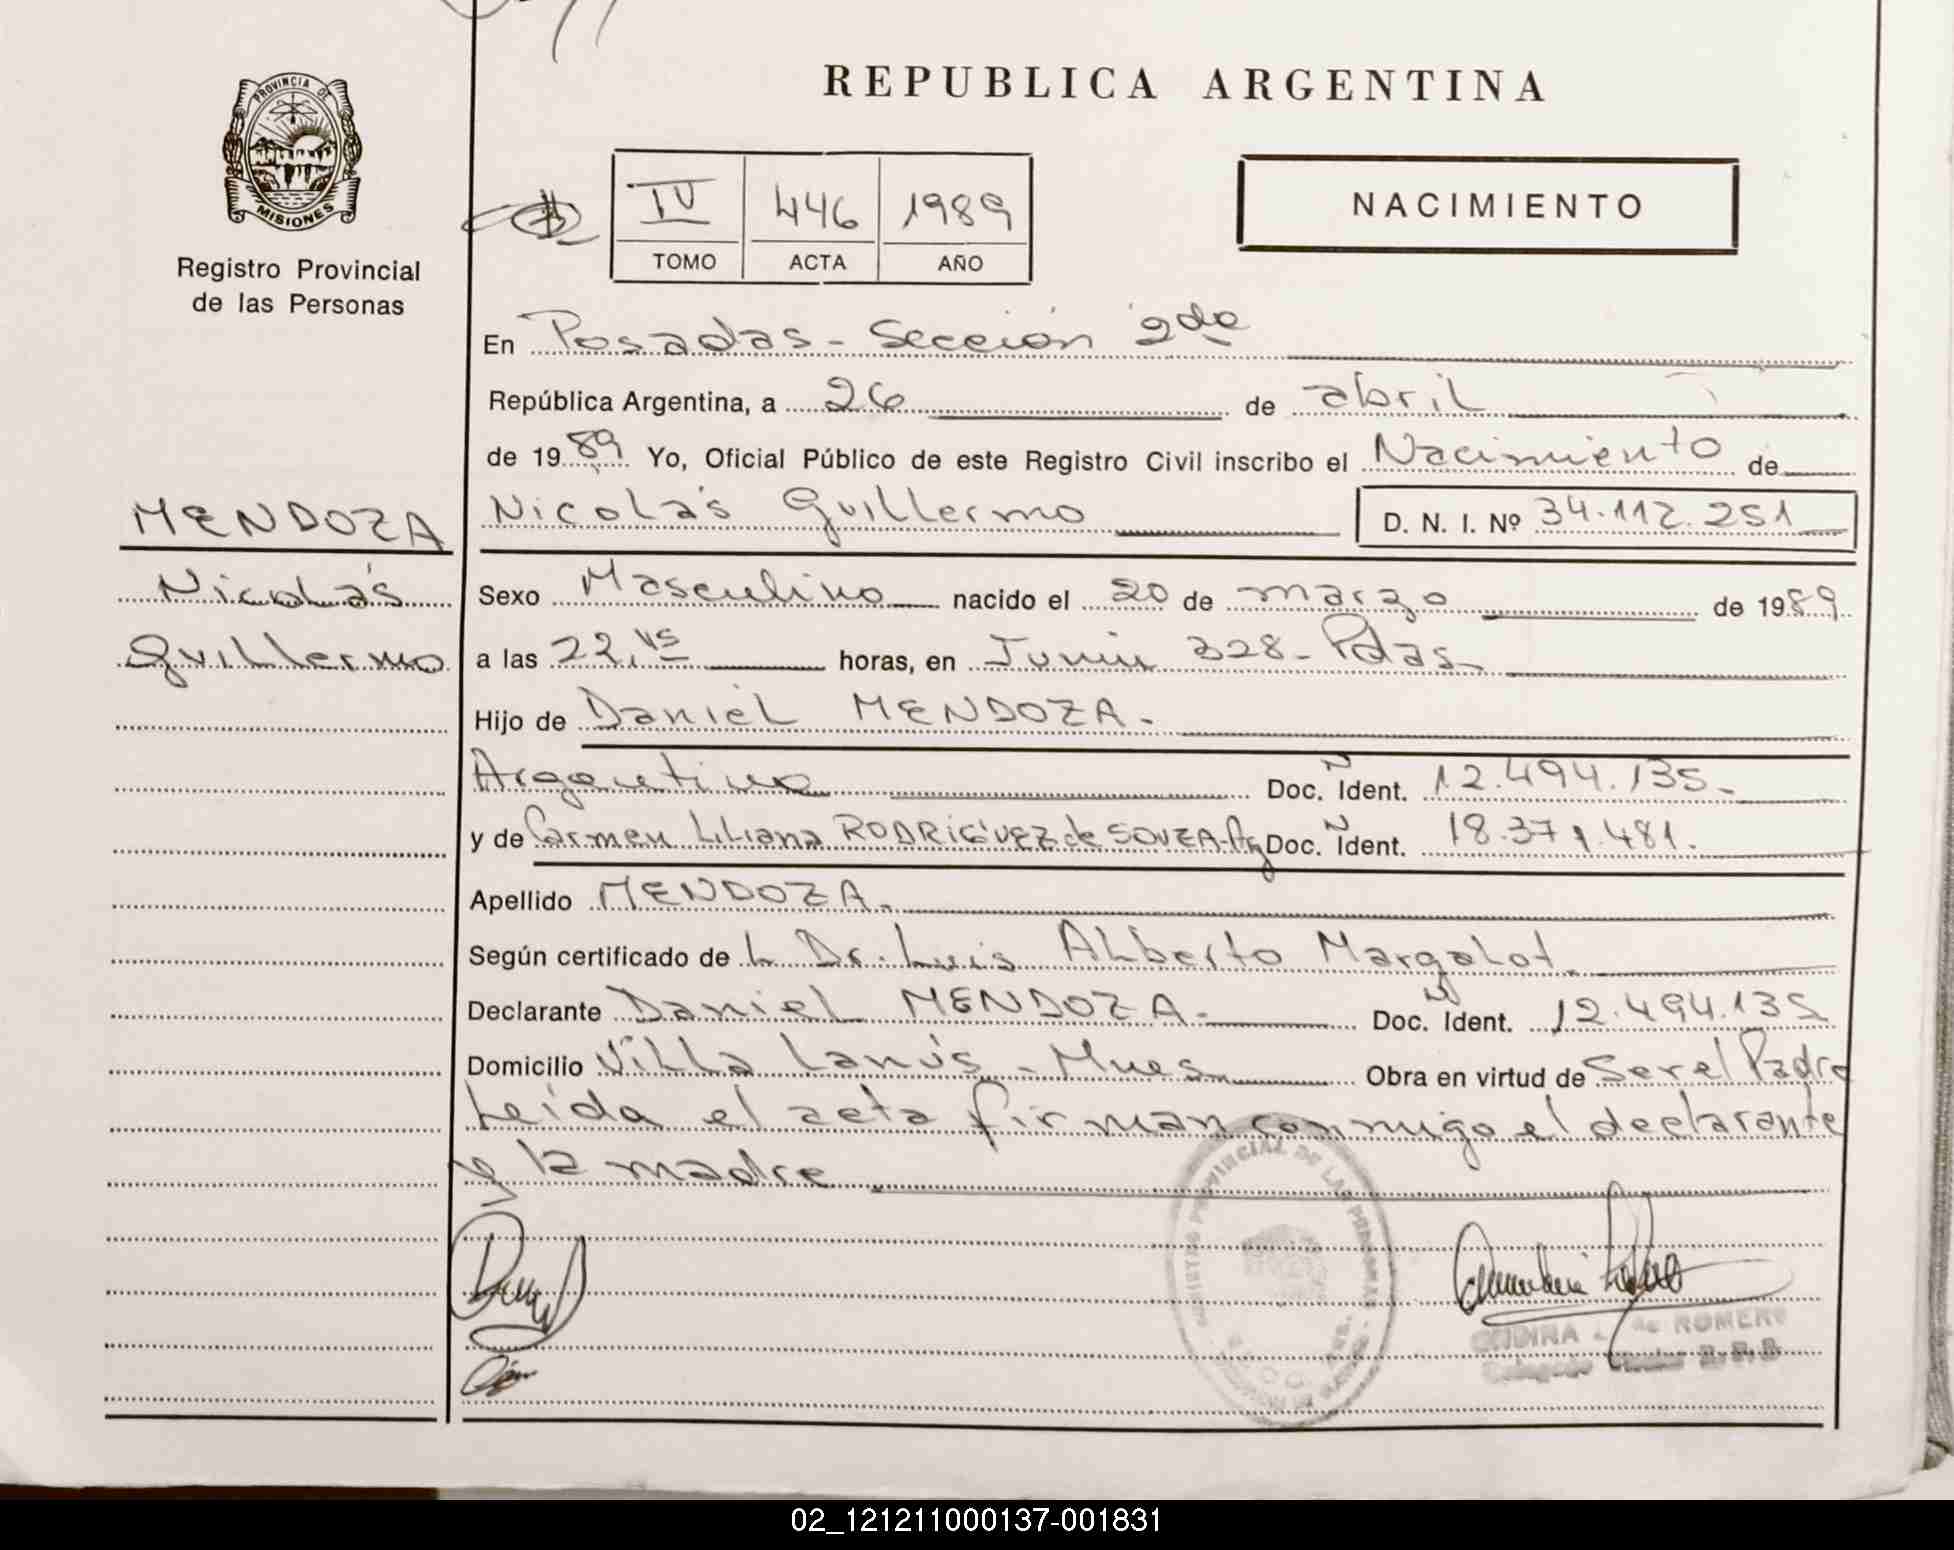 REPUBLICA ARGENTINA
PROVINCIA DE
MISIONES
Registro Provincial
de las Personas
IV 446 1989
TOMO ACTA AÑO
NACIMIENTO
En Posadas - Sección 2da
República Argentina, a 26 de abril
de 1989 Yo, Oficial Público de este Registro Civil inscribo el Nacimiento de
MENDOZA
Nicolás
Guillermo
Nicolás Guillermo D. N. I. Nº 34.112.251
Sexo Masculino nacido el 20 de marzo de 1989
a las 22,15 horas, en Junín 328 - Pdas.
Hijo de Daniel MENDOZA.
Argentino Doc. N Ident. 12.494.135.
y de Carmen Liliana RODRIGUEZ de SOUZA - Arg Doc. N Ident. 18.371.481.
Apellido MENDOZA.
Según certificado de L Dr. Luis Alberto Margalot.
Declarante Daniel MENDOZA. Doc. N Ident. 12.494.135
Domicilio Villa Lanús - Mnes Obra en virtud de Ser el Padre
Leída el acta firman conmigo el declarante
y la madre
PROVINCIAL DE LAS PERSONAS
de ROMERO
02_121211000137-001831